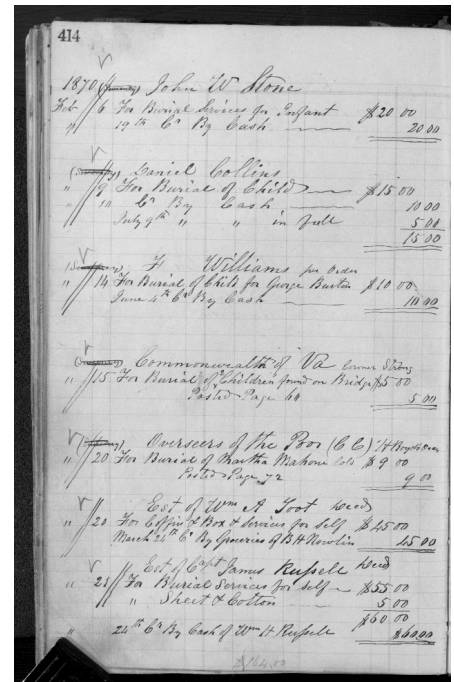 414
1870 John W Stone
Feb 6 For Burial Services for Infant $20 00
" 19th Cr By Cash 20 00
Daniel Collins
" 9 For Burial of Child $15 00
" 10 Cr By Cash 10 00
July 9th " " in full 5 00
15 00
Williams per Order
" 14 For Burial of Child for George Burton $10 00
June 4th Cr By Cash 10 00
Commonwealth of Va Coroner Strong
" 15 For Burial of Children found on Bridge $5 00
Posted Page 64 5 00
Overseers of the Poor (C C)
" 20 For Burial of Martha Mahone Cold $9 00
Posted Page 72 9 00
Est of Wm A Toot Decd
" 20 For Coffin & Box & Services for self $45 00
March 24th Cr By Groceries of B H Nowlin 45 00
Est of Capt James Russell Decd
" 23 For Burial Services for self $55 00
" Sheet & Cotton 5 00
$60 00
" 24th Cr By Cash of Wm H Russell $60 00
$164.00